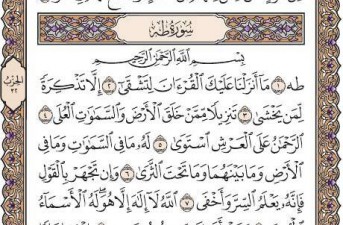 سُورَةُ طه
بِسْمِ اللَّهِ الرَّحْمَٰنِ الرَّحِيمِ
طه ١ مَا أَنزَلْنَا عَلَيْكَ الْقُرْءَانَ لِتَشْقَىٰ ٢ إِلَّا تَذْكِرَةً
لِّمَن يَخْشَىٰ ٣ تَنزِيلًا مِّمَّنْ خَلَقَ الْأَرْضَ وَالسَّمَٰوَٰتِ الْعُلَى ٤
الرَّحْمَٰنُ عَلَى الْعَرْشِ اسْتَوَىٰ ٥ لَهُ مَا فِي السَّمَٰوَٰتِ وَمَا فِي
الْأَرْضِ وَمَا بَيْنَهُمَا وَمَا تَحْتَ الثَّرَىٰ ٦ وَإِن تَجْهَرْ بِالْقَوْلِ
فَإِنَّهُ يَعْلَمُ السِّرَّ وَأَخْفَى ٧ اللَّهُ لَا إِلَٰهَ إِلَّا هُوَ لَهُ الْأَسْمَاءُ
الحزب
٣٢